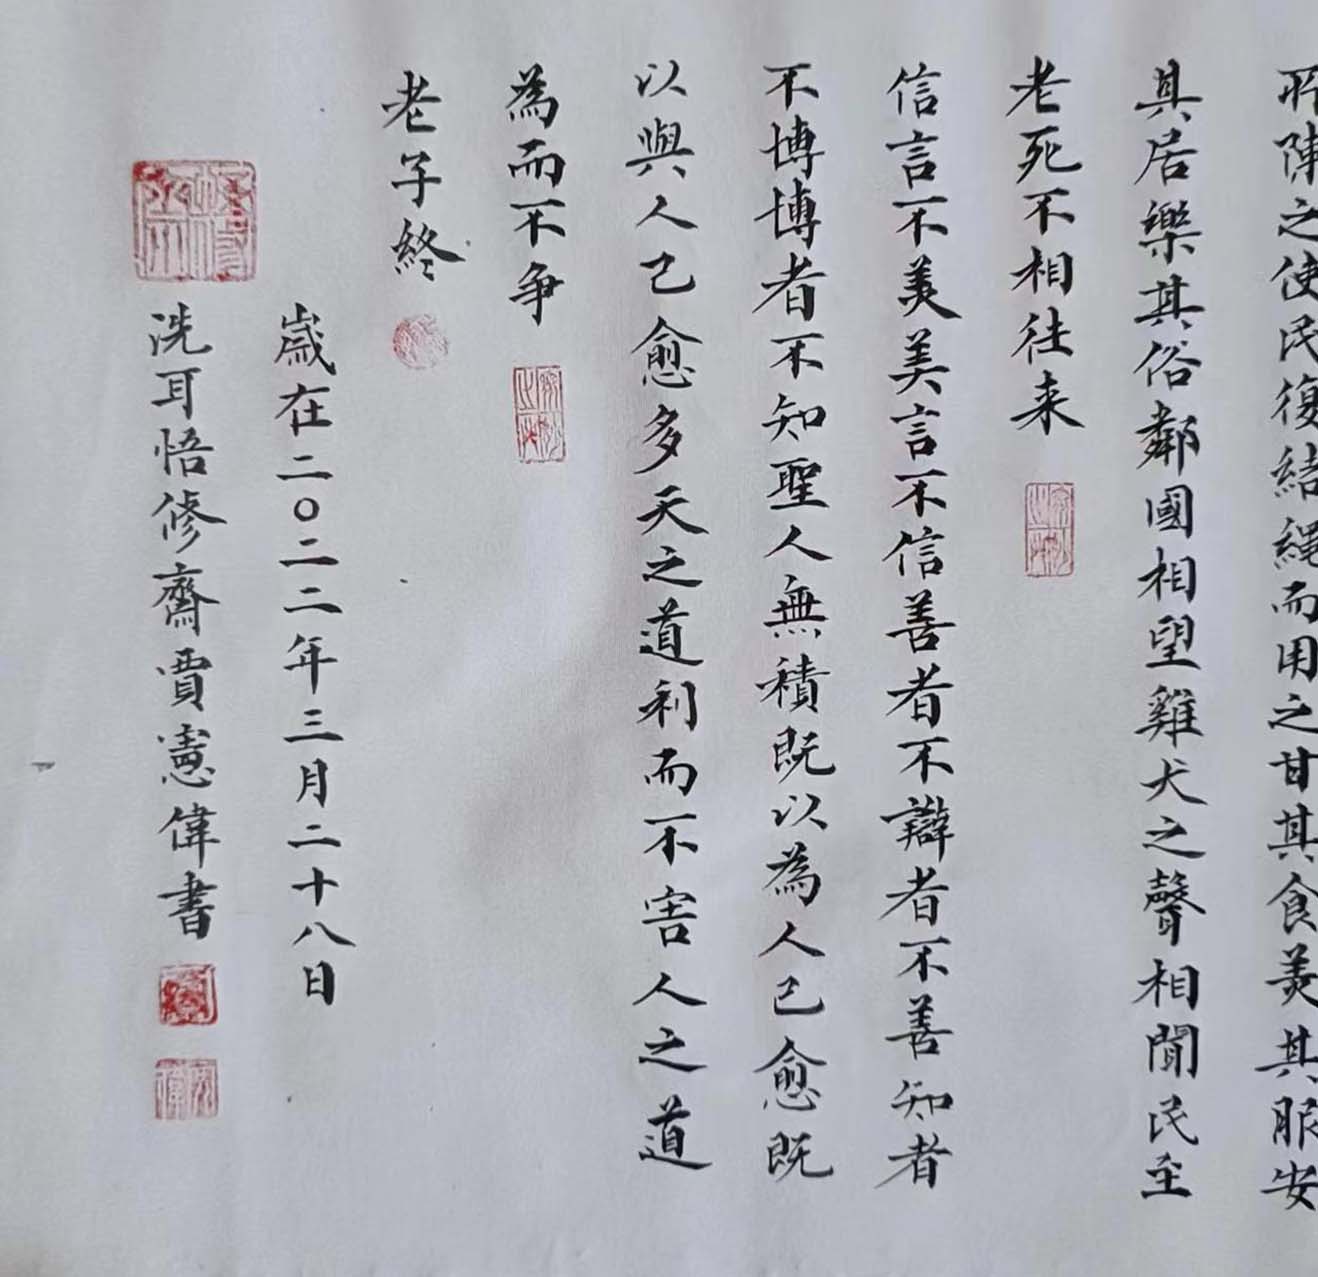 所陳之使民復結繩而用之甘其食美其服安
其居樂其俗鄰國相望雞犬之聲相聞民至
老死不相往来
信言不美美言不信善者不辯辯者不善知者
不博博者不知聖人無積既以為人己愈既
以與人己愈多天之道利而不害人之道
為而不争
老子終
歲在二〇二二年三月二十八日
洗耳悟修齋賈憲偉書